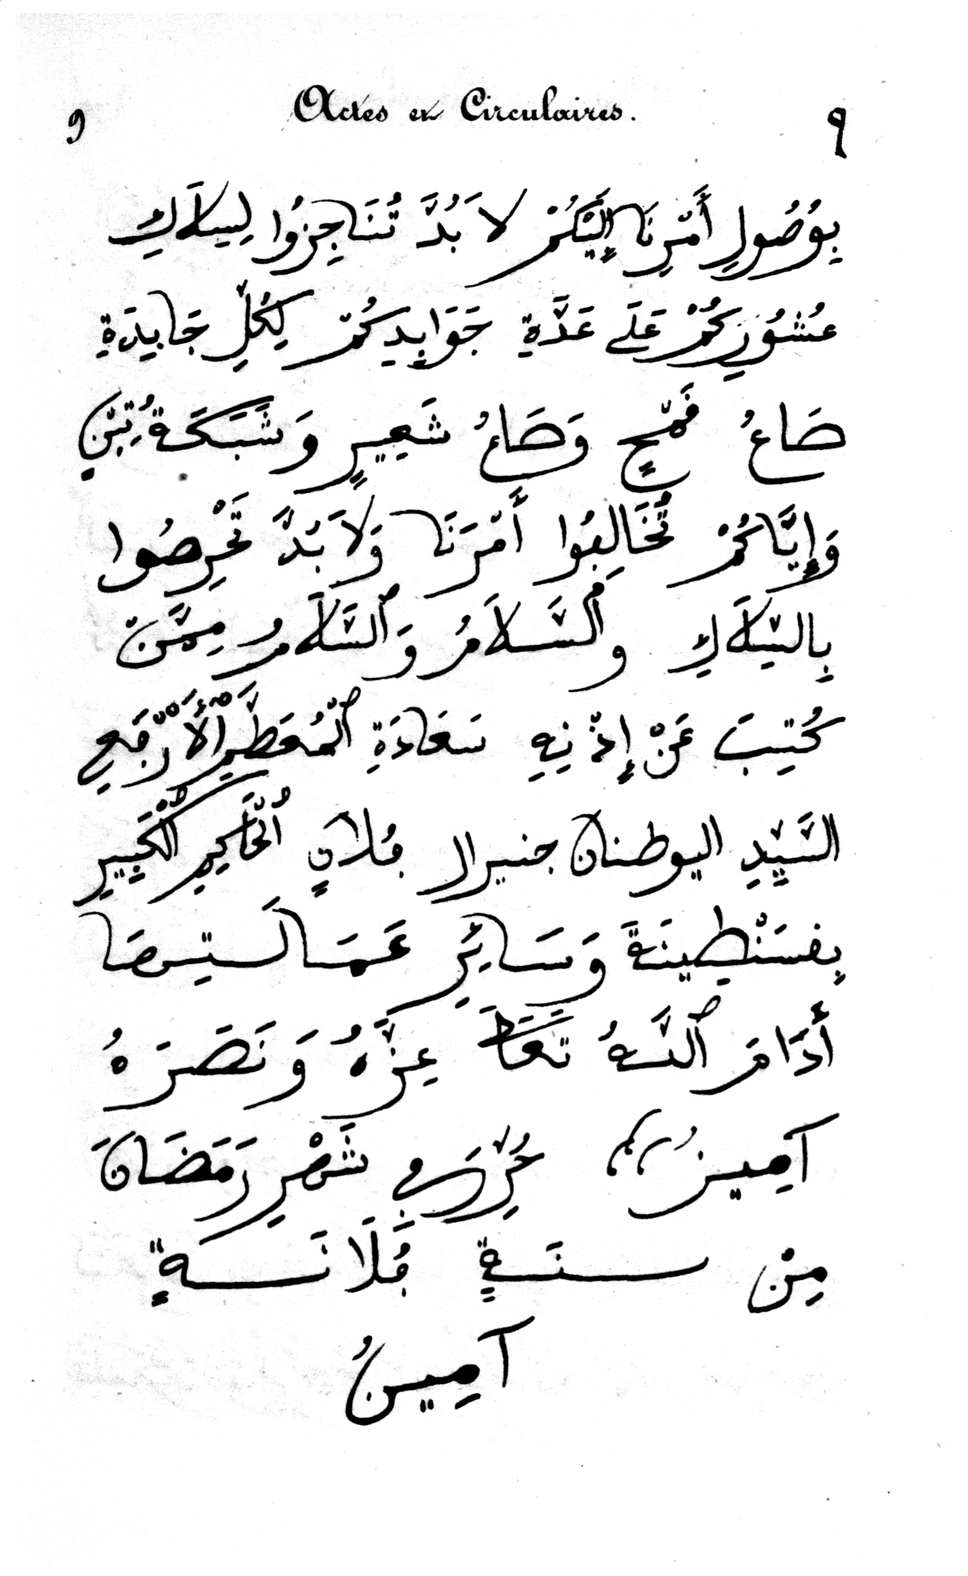 9 Actes et Circulaires. ٩
بِوُصُولِ أَمْرِنَا إِلَيْكُمْ لَا بُدَّ تُنَاجِزُوا لِبيلَاكِ
عُشُورِكُمْ عَلَى عَدَّةِ جَوَابِدِكُمْ لِكُلِّ جَابِدَةٍ
صَاعُ قَمْحٍ وَصَاعُ شَعِيرٍ وَشَبَكَةُ تِبْنٍ
وَإِيَّاكُمْ تُخَالِفُوا أَمْرَنَا وَلَا بُدَّ تَحْرِصُوا
بِالبَيْلَاكِ وَٱلسَّلَامُ وَٱلسَّلَامُ مِمَّنْ
كُتِبَ عَنْ إِذْنِهِ سَعَادَةِ ٱلْمُعَظَّمِ ٱلْأَرْفَعِ
السَّيِّدِ اليوطنان جنيرال فُلَانٍ ٱلْحَاكِمِ ٱلْكَبِيرِ
بِقسَنْطِينَةَ وَسَائِرِ عَمَالَـتِـهَا
أَدَامَ ٱللَّهُ تَعَالَى عِزَّهُ وَنَصَرَهُ
آمِينُ حُرِّرَ فِي شَهْرِ رَمَضَانَ
مِنْ سنَةٍ فُلَانَـةٍ
آمِينُ